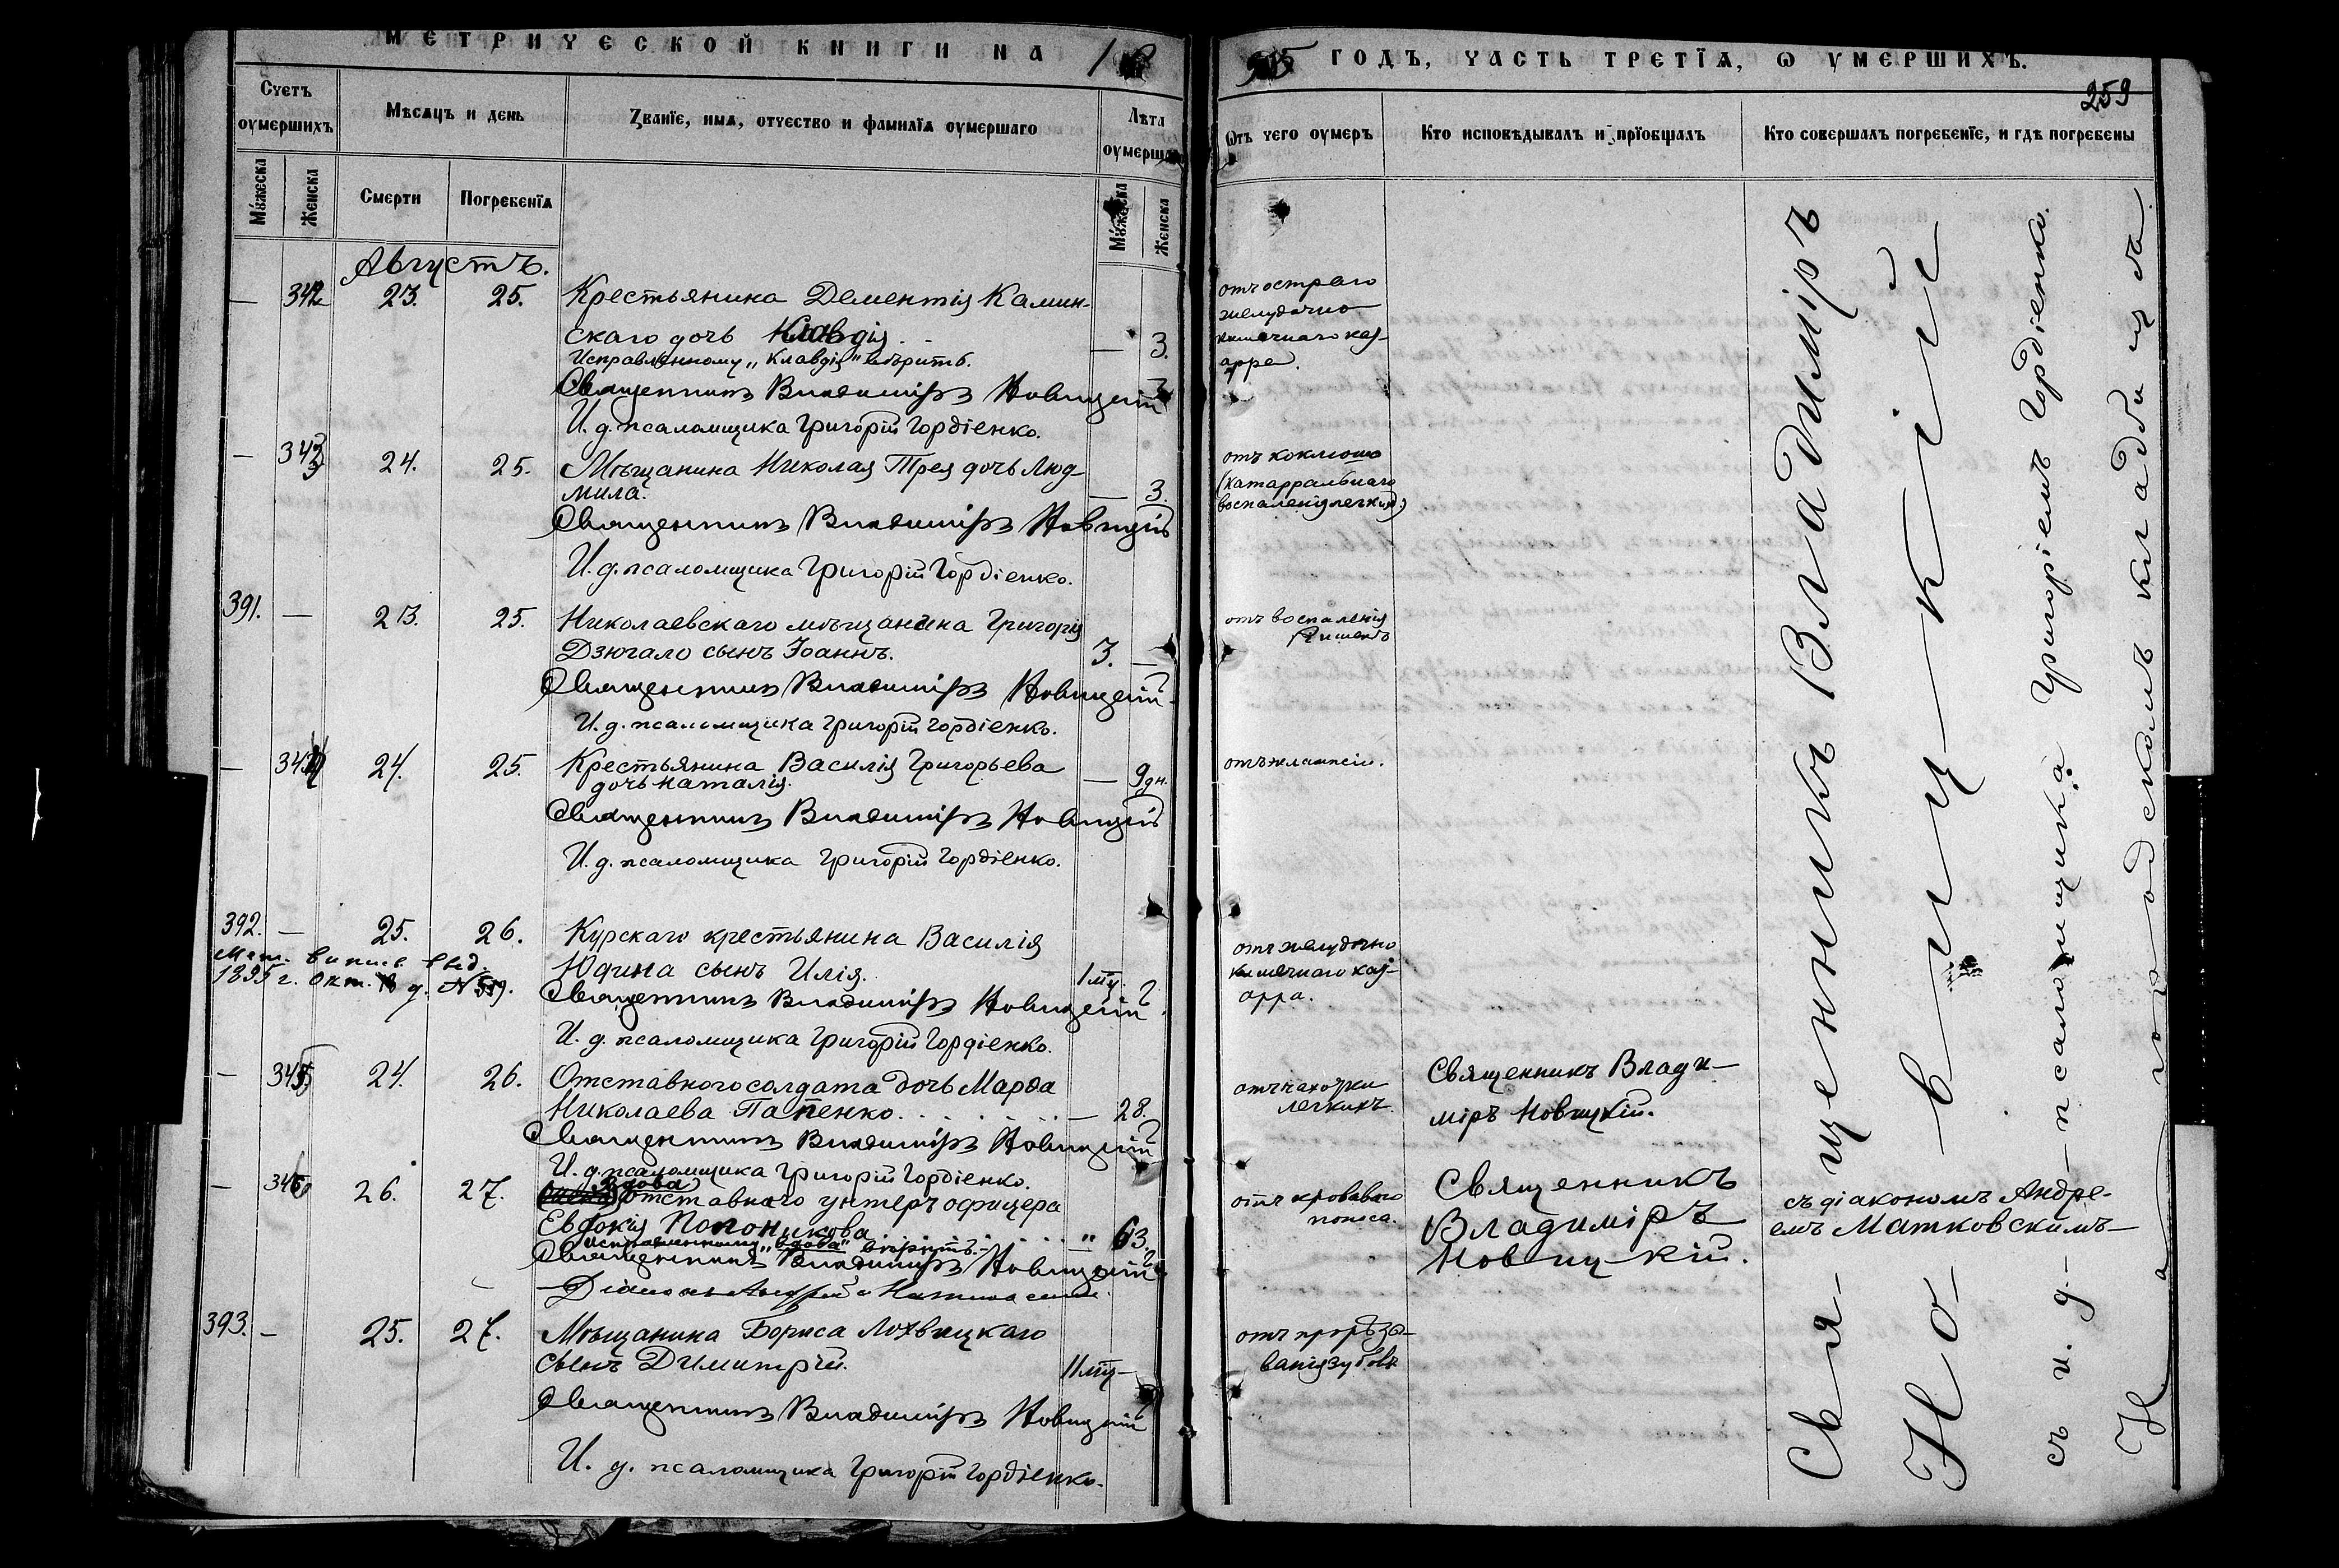 МЕТРИЧЕСКОЙ КНИГИ НА 18
95 ГОДЪ, ЧАСТЬ ТРЕТІЯ, Ѡ УМЕРШИХЪ.
259
Счетъ оумершихъ
Мѣсяцъ и день
Званіе, имя, отчество и фамилія оумершаго
Лѣта оумершаго
Мꙋжеска
Женска
Смерти
Погребенія
Мꙋжеска
Женска
Ѿъ чего оумеръ
Кто исповѣдывалъ и пріобщалъ
Кто совершалъ погребеніе, и гдѣ погребены
Августъ.
— 342 23. 25. Крестьянина Дементія Камин-
скаго дочь Клавдія. — 3.
Исправленному „Клавдія" вѣрить.
Священникъ Владиміръ Новицкій
И. д. псаломщика Григорій Гордіенко.
отъ остраго
желудочно
кишечнаго кат-
арра.
— 343 24. 25. Мѣщанина Николая Трея дочь Люд-
мила. — 3.
Священникъ Владиміръ Новицкій
И. д. псаломщика Григорій Гордіенко.
отъ коклюша
(катарральнаго
воспаленія легкихъ)
391. — 23. 25. Николаевскаго мѣщанина Григорія
Дзюгало сынъ Іоаннъ. 3. —
Священникъ Владиміръ Новицкій
И. д. псаломщика Григорій Гордіенко.
отъ воспаленія
кишекъ
— 344 24. 25. Крестьянина Василія Григорьева
дочь Наталія. — 9 дн.
Священникъ Владиміръ Новицкій
И. д. псаломщика Григорій Гордіенко.
392. — 25. 26. Курскаго крестьянина Василія
Юдина сынъ Илія. 1 мц.
Мет. выпис. выд.
1895 г. окт.
Священникъ Владиміръ Новицкій
И. д. псаломщика Григорій Гордіенко.
отъ желудочно
кишечнаго кат-
арра.
— 345 24. 26. Отставного солдата дочь Марѳа
Николаева Папенко. — 28.
Священникъ Владиміръ Новицкій
И. д. псаломщика Григорій Гордіенко.
отъ чахотки
легкихъ.
Священникъ Влади-
міръ Новицкій.
— 346 26. 27. Вдова отставного унтеръ офицера
Евдокія " 63.
Исправленному „вдова" вѣрить.—
Священникъ Владиміръ Новицкій
Діаконъ Андрей Матковскій.
отъ кроваваго
поноса.
Священникъ
Владиміръ
Новицкій.
съ діакономъ Андре-
емъ Матковскимъ
393. — 25. 27. Мѣщанина Бориса Лохвицкаго
сынъ Димитрій. 11 мц —
Священникъ Владиміръ Новицкій
И. д. псаломщика Григорій Гордіенко.
отъ прорѣзы-
ванія зубовъ
Священникъ Владиміръ
Новицкій
съ и. д. псаломщика Григоріемъ Гордіенко.
На городскомъ кладбищѣ.